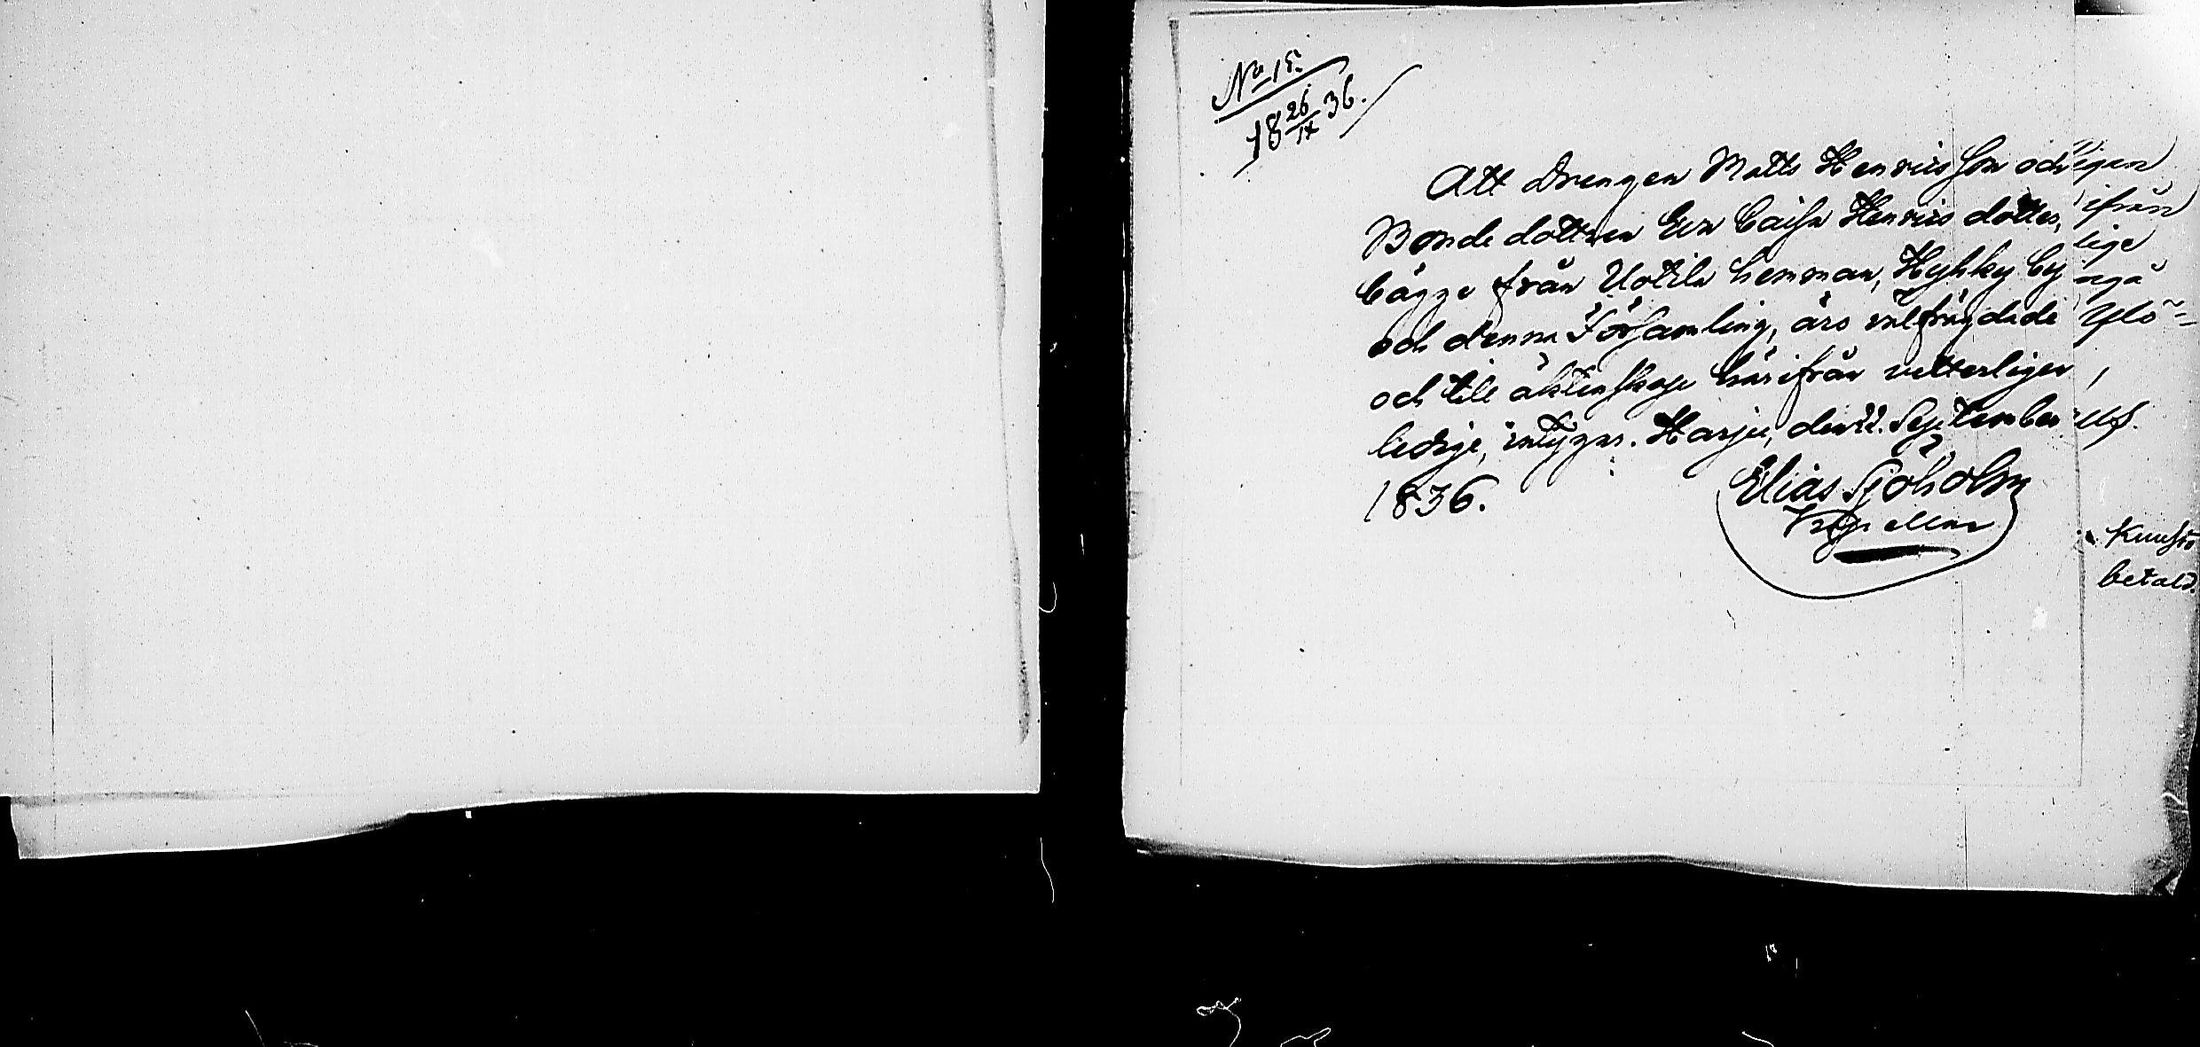 No 15.
18 26/IX 36.
Att Drengen Matts Henricsson och
Bonde dottren Eva Caisa Henrics dotter,
bägge från Uotila hemman, Hyhky by
och denna Församling, äro välfrägdade
och till äktenskap härifrån vetterligen
ledige, intygar. Harju, den 22. September
1836.
Elias Sjöholm
Kapellan
ifrån
lige
ingå
Ylö=
betald.